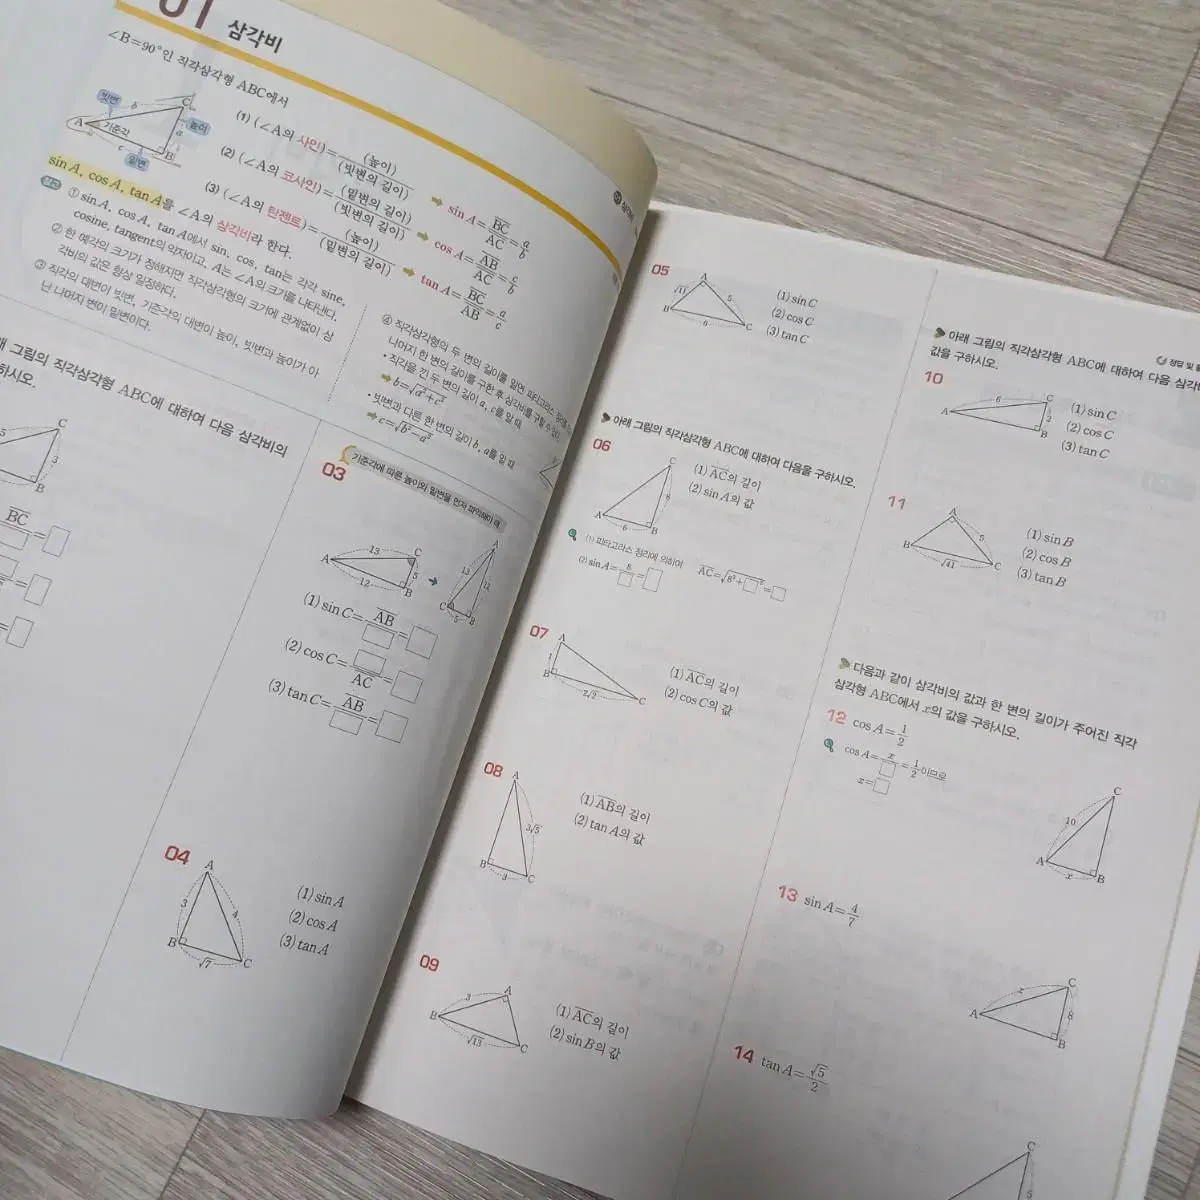 01 삼각비
∠B=90°인 직각삼각형 ABC에서
빗변
기준각
높이
밑변
A
B
C
a
b
c
(1) (∠A의 사인)=(높이)/(빗변의 길이) ➡ sin A=BC/AC=a/b
(2) (∠A의 코사인)=(밑변의 길이)/(빗변의 길이) ➡ cos A=AB/AC=c/b
(3) (∠A의 탄젠트)=(높이)/(밑변의 길이) ➡ tan A=BC/AB=a/c
sin A, cos A, tan A를 ∠A의 삼각비라 한다.
참고 ① sin A, cos A, tan A에서 sin, cos, tan는 각각 sine,
cosine, tangent의 약자이고, A는 ∠A의 크기를 나타낸다.
② 한 예각의 크기가 정해지면 직각삼각형의 크기에 관계없이 삼
각비의 값은 항상 일정하다.
③ 직각의 대변이 빗변, 기준각의 대변이 높이, 빗변과 높이가 아
닌 나머지 변이 밑변이다.
④ 직각삼각형의 두 변의 길이를 알면 피타고라스
나머지 한 변의 길이를 구한 후 삼각비를 구할 수 있다.
• 직각을 낀 두 변의 길이 a, c를 알 때
➡ b=√a²+c²
• 빗변과 다른 한 변의 길이 b, a를 알 때
➡ c=√b²-a²
그림의 직각삼각형 ABC에 대하여 다음 삼각비의
하시오.
5
C
3
B
BC
03
기준각에 따른 높이와 밑변을 먼저 파악해야 해.
A
13
C
5
12
B
A
13
12
C
5
B
(1) sin C=AB/□=□
(2) cos C=□/AC=□
(3) tan C=AB/□=□
04
A
3
4
B
√7
C
(1) sin A
(2) cos A
(3) tan A
05
A
√11
5
B
6
C
(1) sin C
(2) cos C
(3) tan C
아래 그림의 직각삼각형 ABC에 대하여 다음을 구하시오.
06
C
8
A
6
B
(1) AC의 길이
(2) sin A의 값
(1) 피타고라스 정리에 의하여 AC=√8²+□²=□
(2) sin A=8/□=□
07
A
1
B
2√2
C
(1) AC의 길이
(2) cos C의 값
08
A
3√5
B
3
C
(1) AB의 길이
(2) tan A의 값
09
A
3
B
√13
C
(1) AC의 길이
(2) sin B의 값
정답 및
아래 그림의 직각삼각형 ABC에 대하여 다음 삼각비
값을 구하시오.
10
6
C
2
A
B
(1) sin C
(2) cos C
(3) tan C
11
A
5
B
√41
C
(1) sin B
(2) cos B
(3) tan B
다음과 같이 삼각비의 값과 한 변의 길이가 주어진 직각
삼각형 ABC에서 x의 값을 구하시오.
12 cos A=1/2
cos A=x/□=1/2이므로
x=□
C
10
A
x
B
13 sin A=4/7
C
x
8
A
B
14 tan A=√5/2
C
5